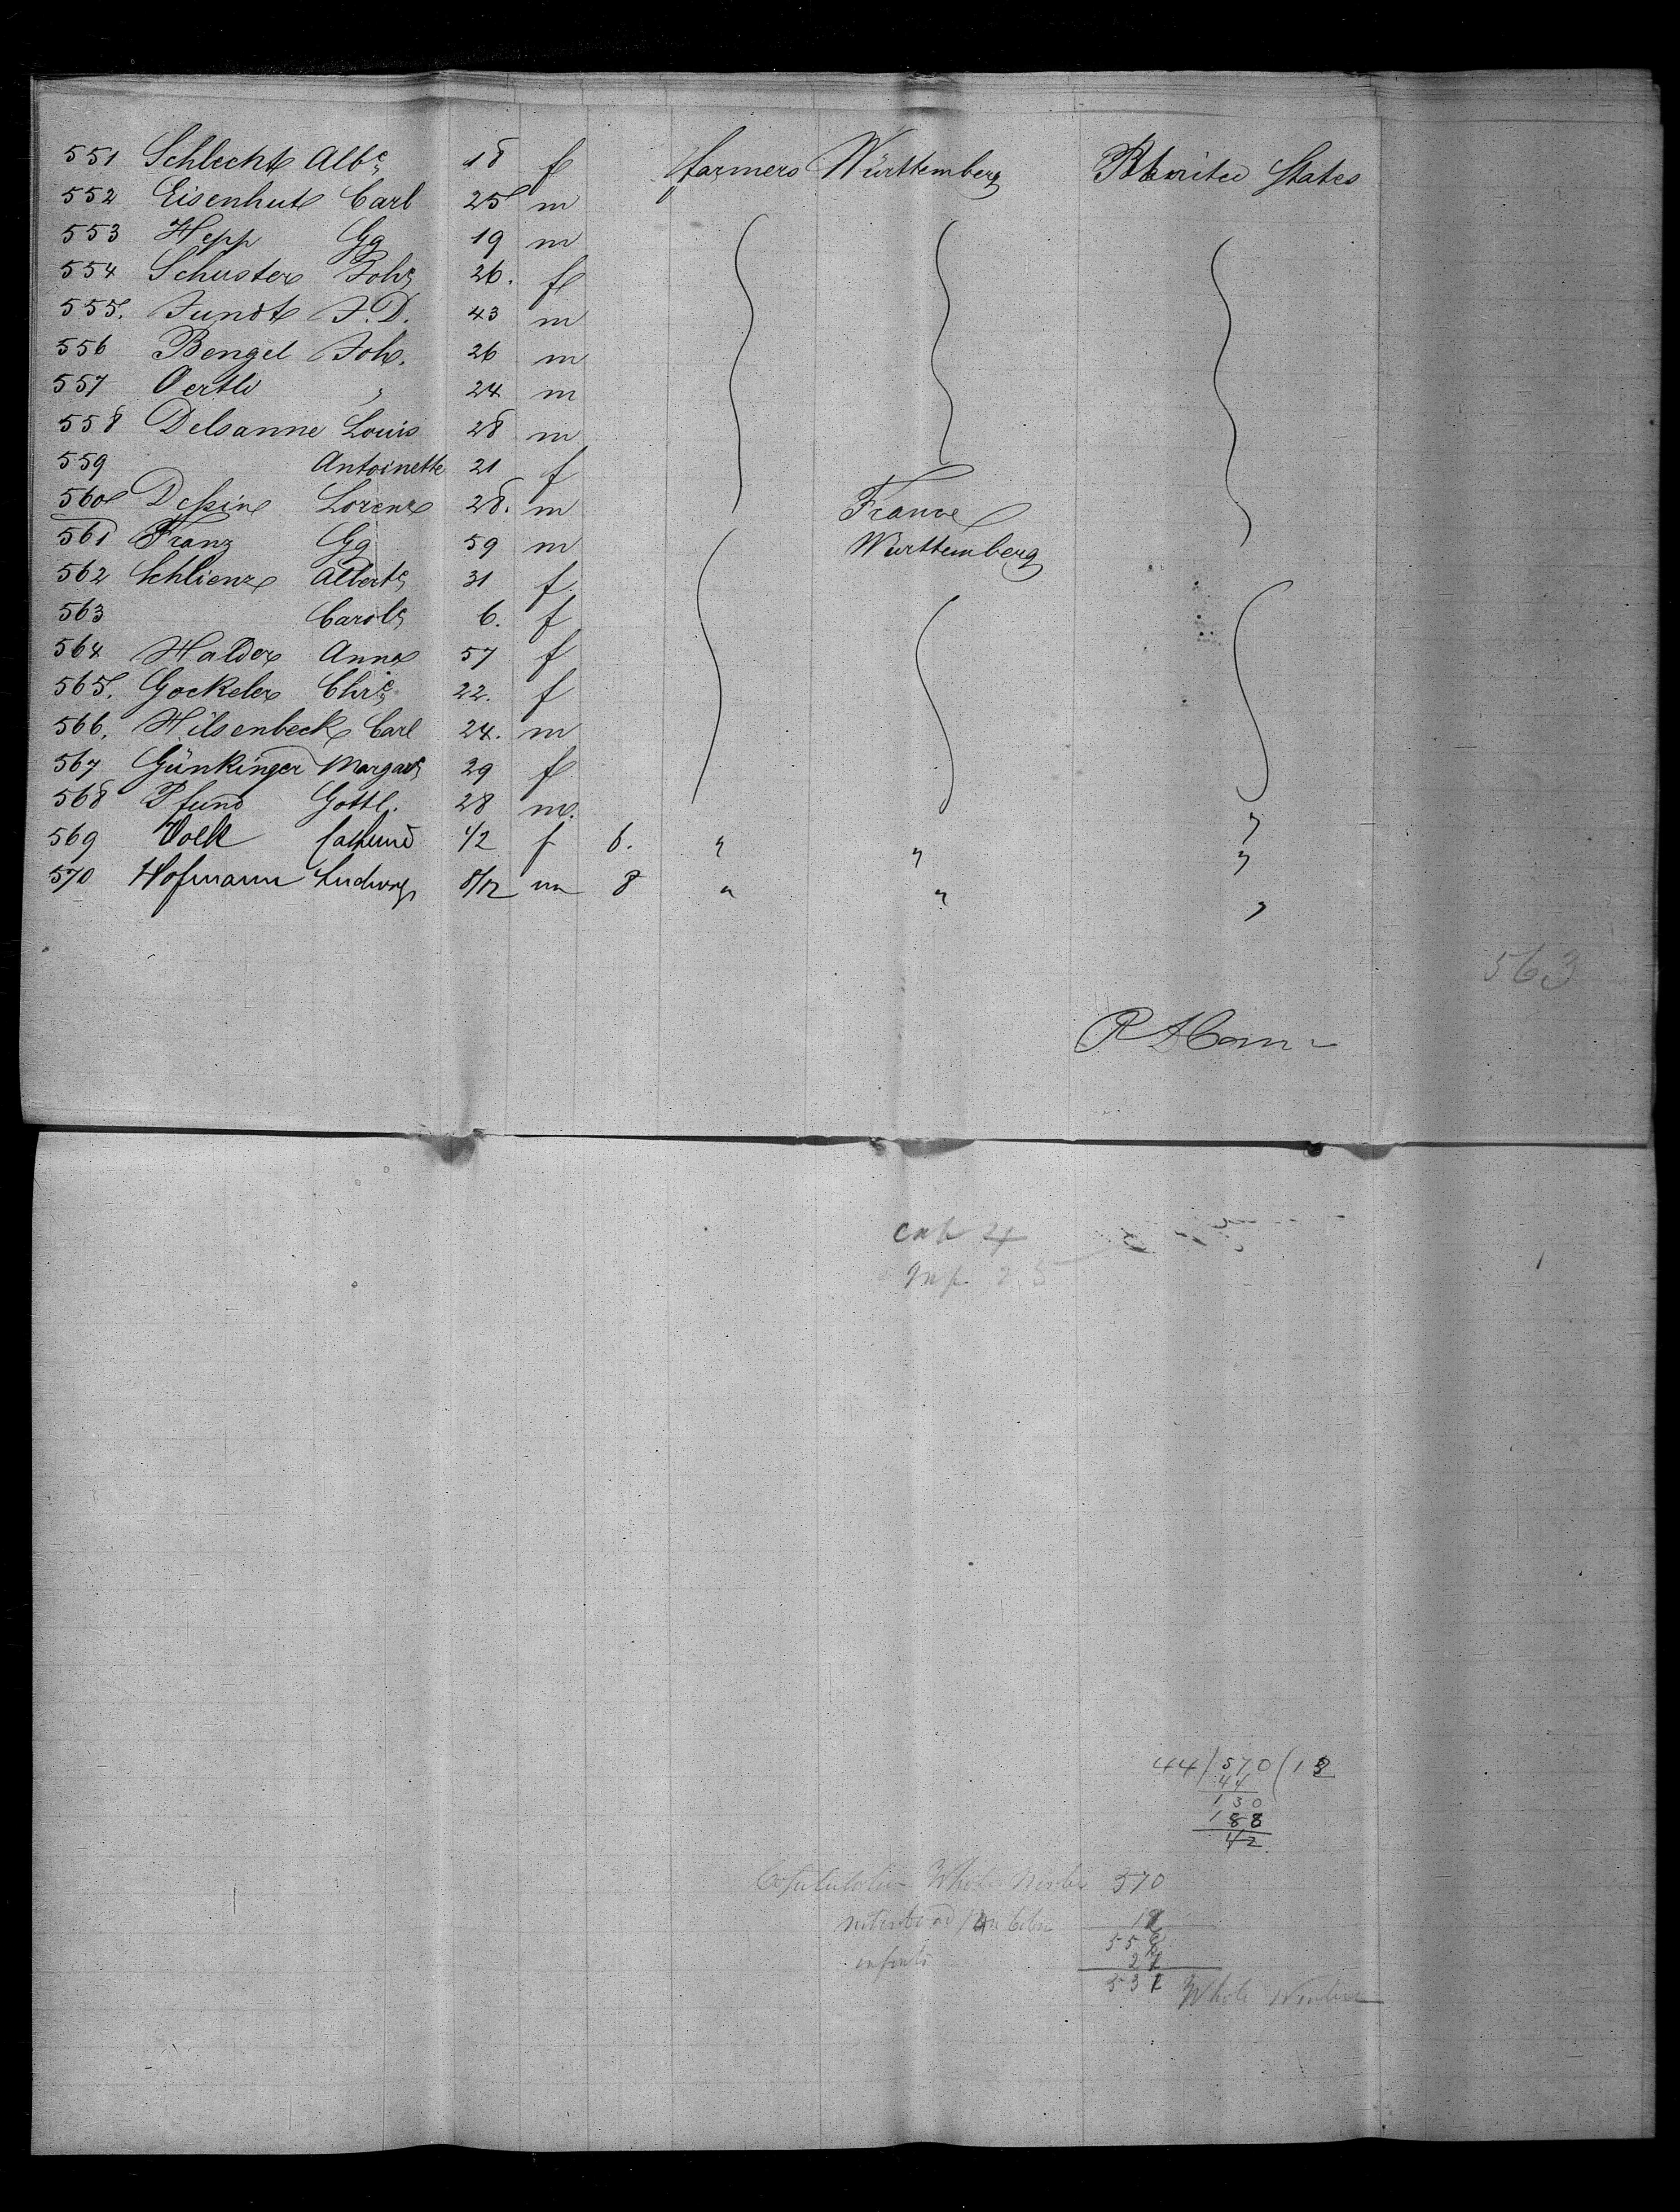 551 Schlecht Albe 18 f farmers Württemberg United States
552 Eisenhut Carl 25 m
553 Hepp Gg 19 m
554 Schuster Johs 26. f
555. Jundt J.D. 43 m
556 Bengel Joh. 26 m
557 Oertli " 24 m
558 Delsanne Louis 28 m
559 Antoinette 21 f
560 Dessin Lorenz 28. m France
561 Franz Gg 59 m Württemberg
562 Schlienz Alberte 31 f.
563 Carole 6. f
564 Halder Anna 57 f
565. Gockeler Chre 22. f
566. Hilsenbeck Carl 24. m
567 Günkinger Margare 29 f
568 Pfund Gottl. 28 m. "
569 Volk 1/2 f 6. " " "
570 Hofmann Ludwig 8/12 m 8 " " "
563
cab 4
Inf. 25
44/570(12
44
130
188
42
Whole number 570
12
infants
Whole Number